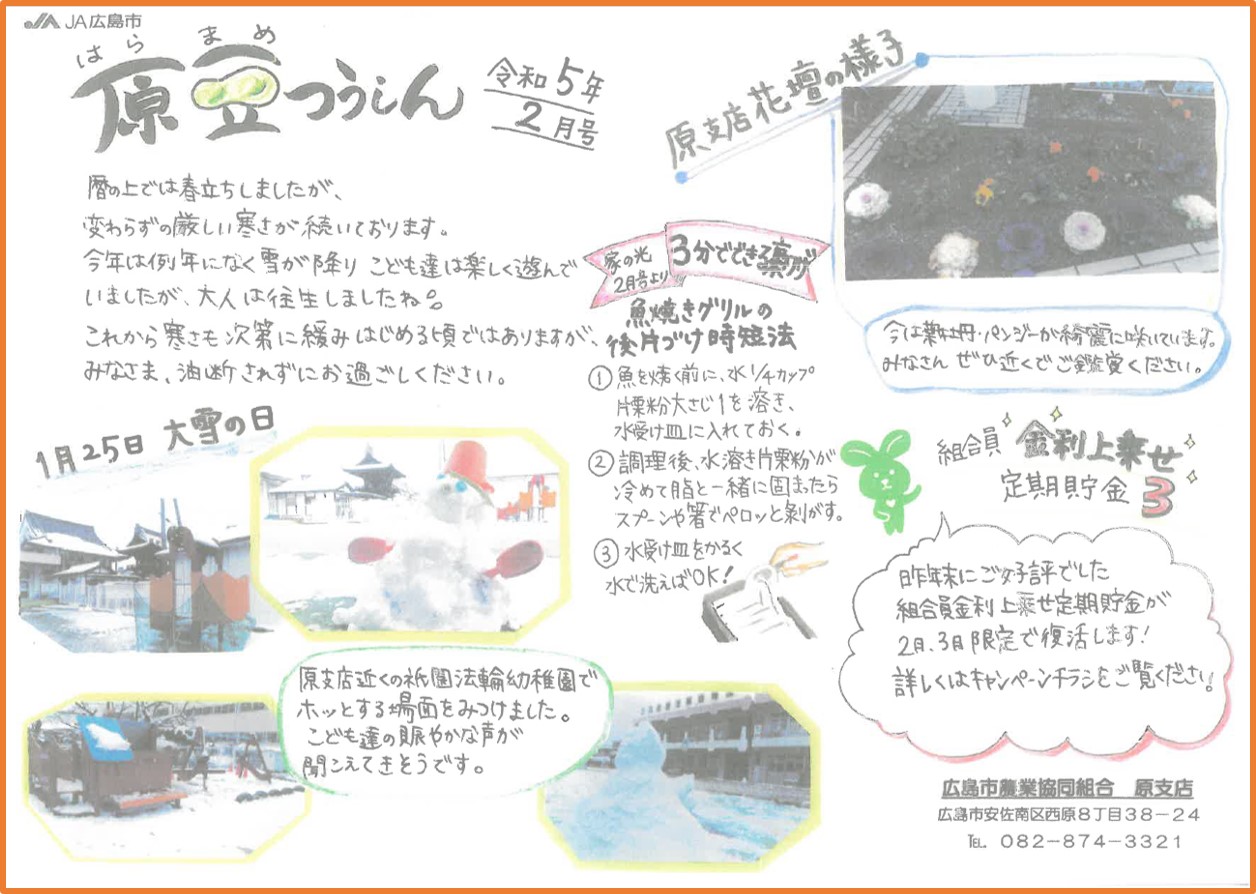 JA広島市
はらまめ
原豆つうしん
令和5年
2月号
暦の上では春立ちしましたが、
変わらずの厳しい寒さが続いております。
今年は例年になく雪が降り こども達は楽しく遊んで
いましたが、大人は往生しましたね。
これから寒さも次第に緩みはじめる頃ではありますが、
みなさま、油断されずにお過ごしください。
1月25日 大雪の日
原支店近くの祇園法輪幼稚園で
ホッとする場面をみつけました。
こども達の賑やかな声が
聞こえてきそうです。
家の光
2月号より
3分でできる
魚焼きグリルの
後片づけ時短法
① 魚を焼く前に、水1/4カップ
片栗粉大さじ1を溶き、
水受け皿に入れておく。
② 調理後、水溶き片栗粉が
冷めて脂と一緒に固まったら
スプーンや箸でペロッと剥がす。
③ 水受け皿をかるく
水で洗えばOK!
原支店花壇の様子
今は葉牡丹・パンジーが綺麗に咲いています。
みなさん ぜひ近くでご鑑賞ください。
組合員 金利上乗せ
定期貯金3
昨年末にご好評でした
組合員金利上乗せ定期貯金が
2月、3月限定で復活します!
詳しくはキャンペーンチラシをご覧ください。
広島市農業協同組合 原支店
広島市安佐南区西原8丁目38-24
TEL. 082-874-3321